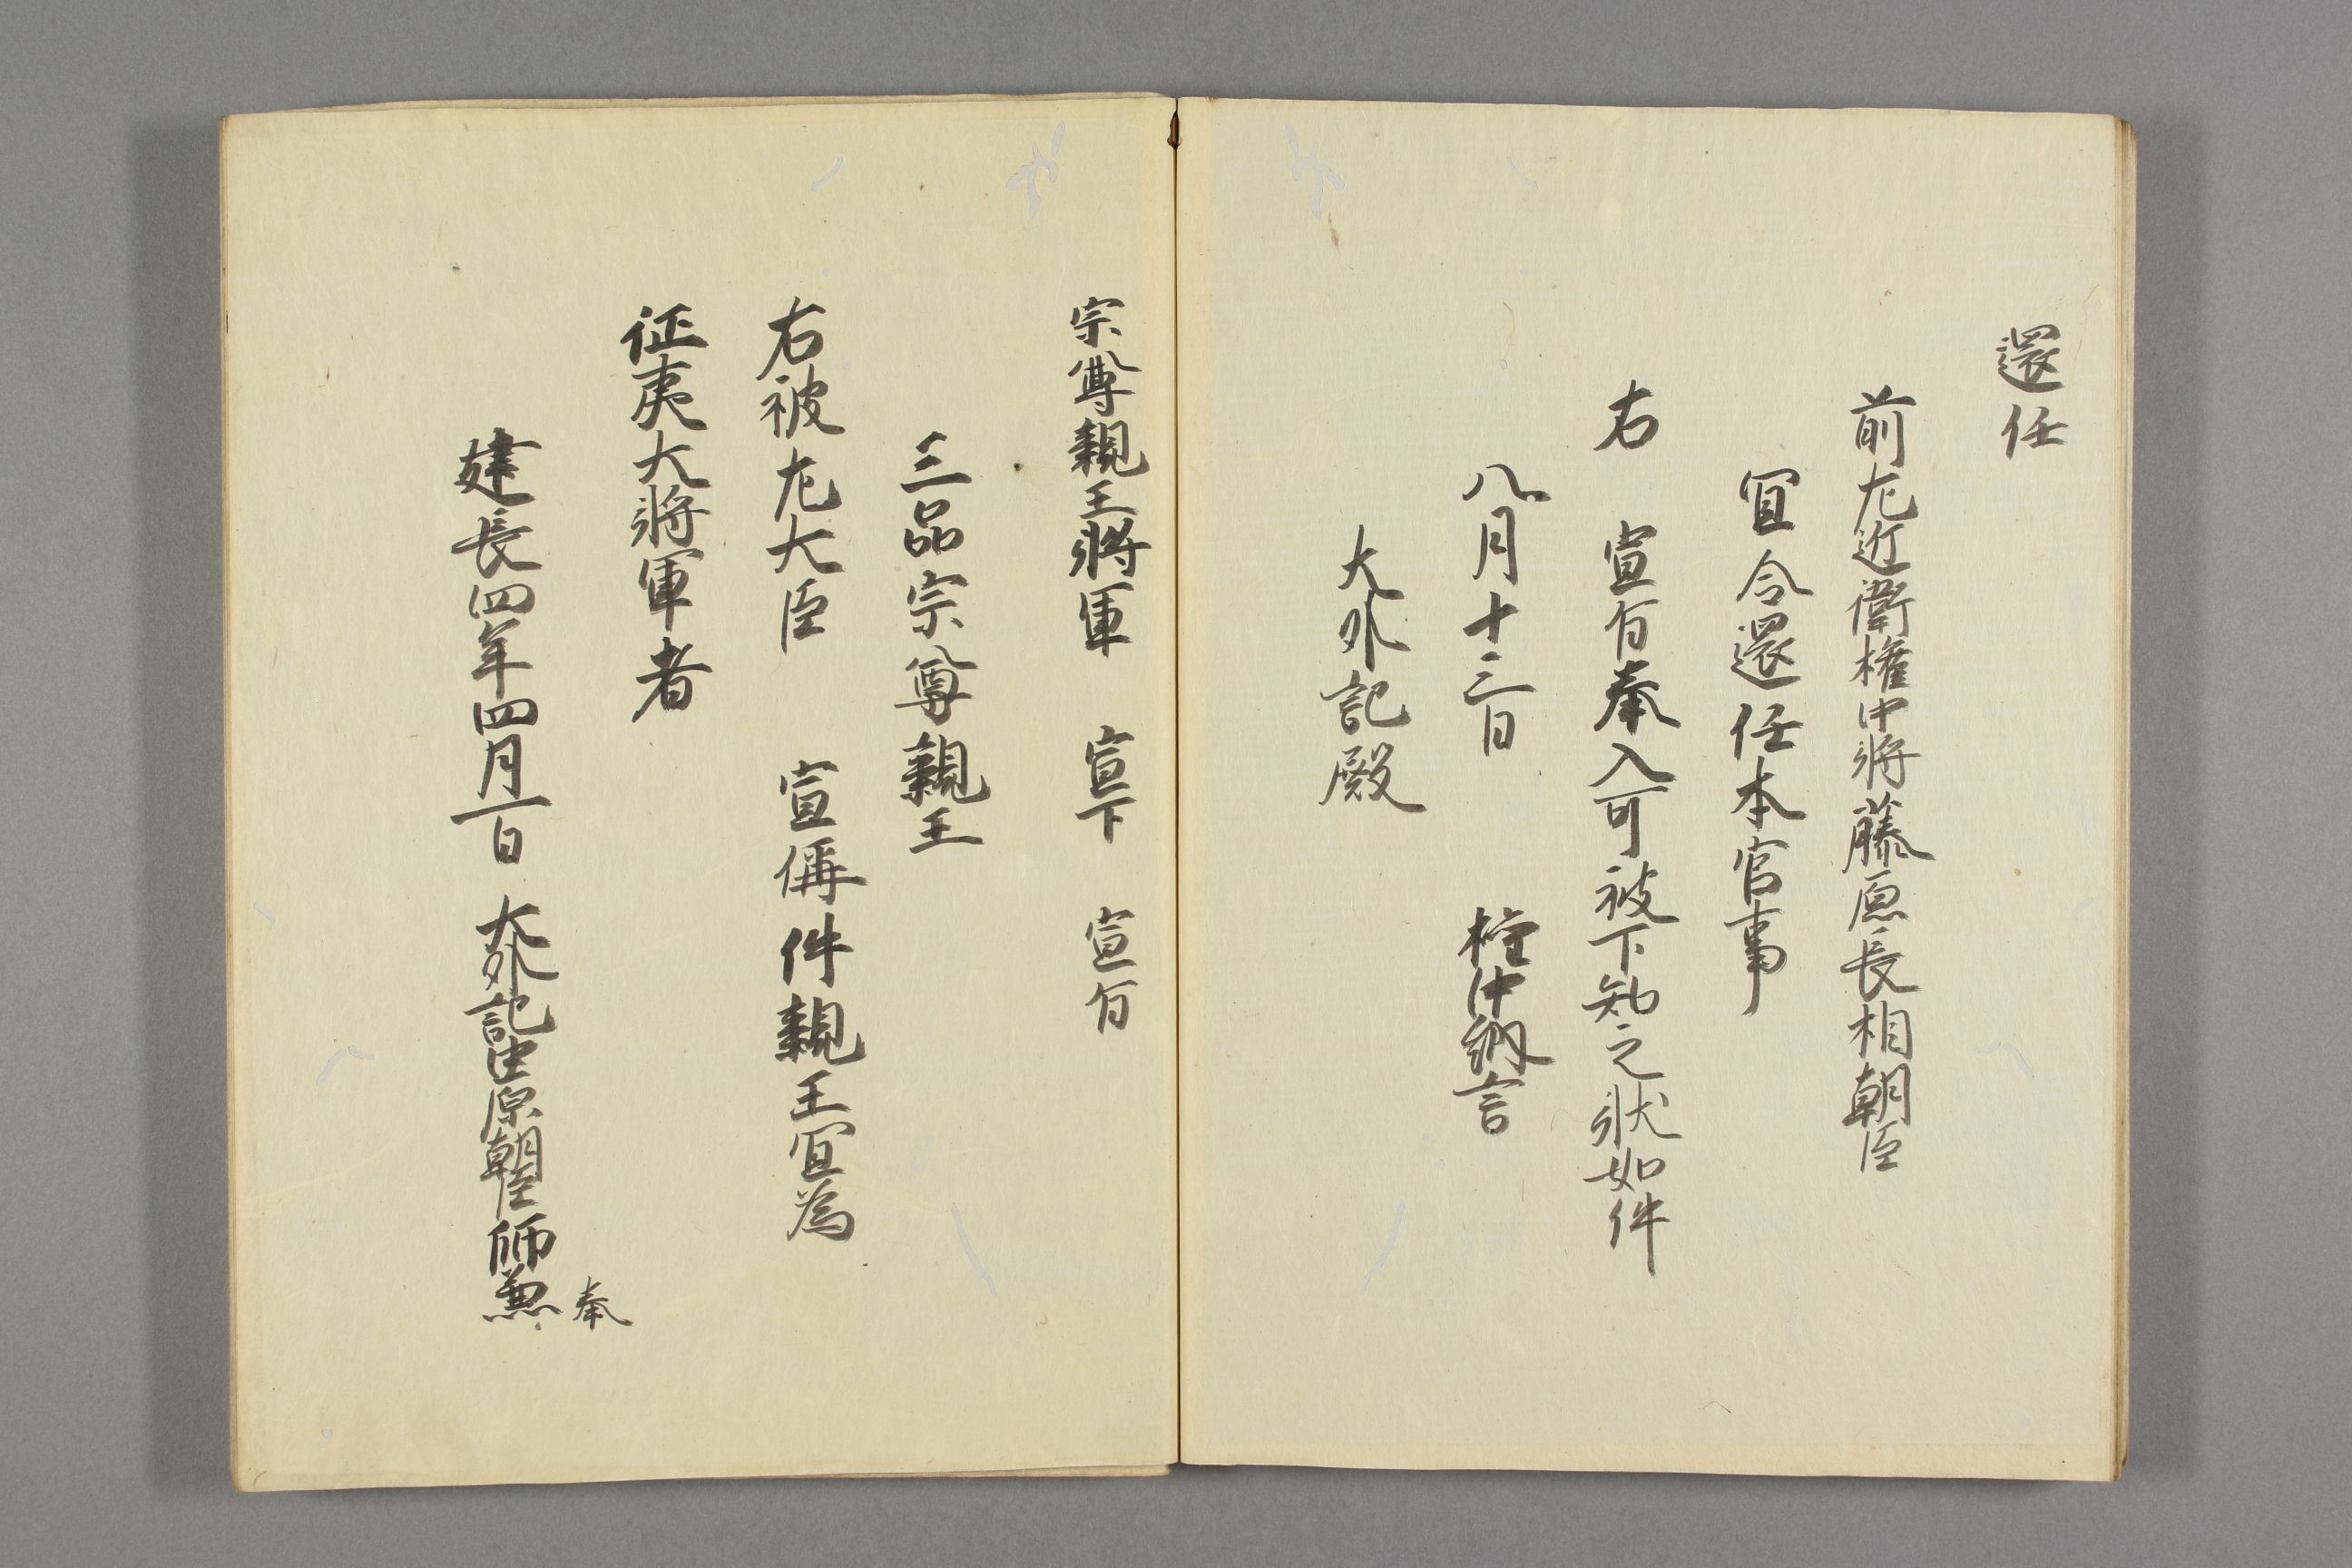 還任
前左近衛権中将藤原長相朝臣
宜令還任本官事
右　宣旨奉入可被下知之状如件
八月十三日　権中納言
大外記殿
宗尊親王将軍　宣下　宣旨
三品宗尊親王
右被左大臣　宣偁件親王宜為
征夷大将軍者
建長四年四月一日　大外記中原朝臣師兼奉